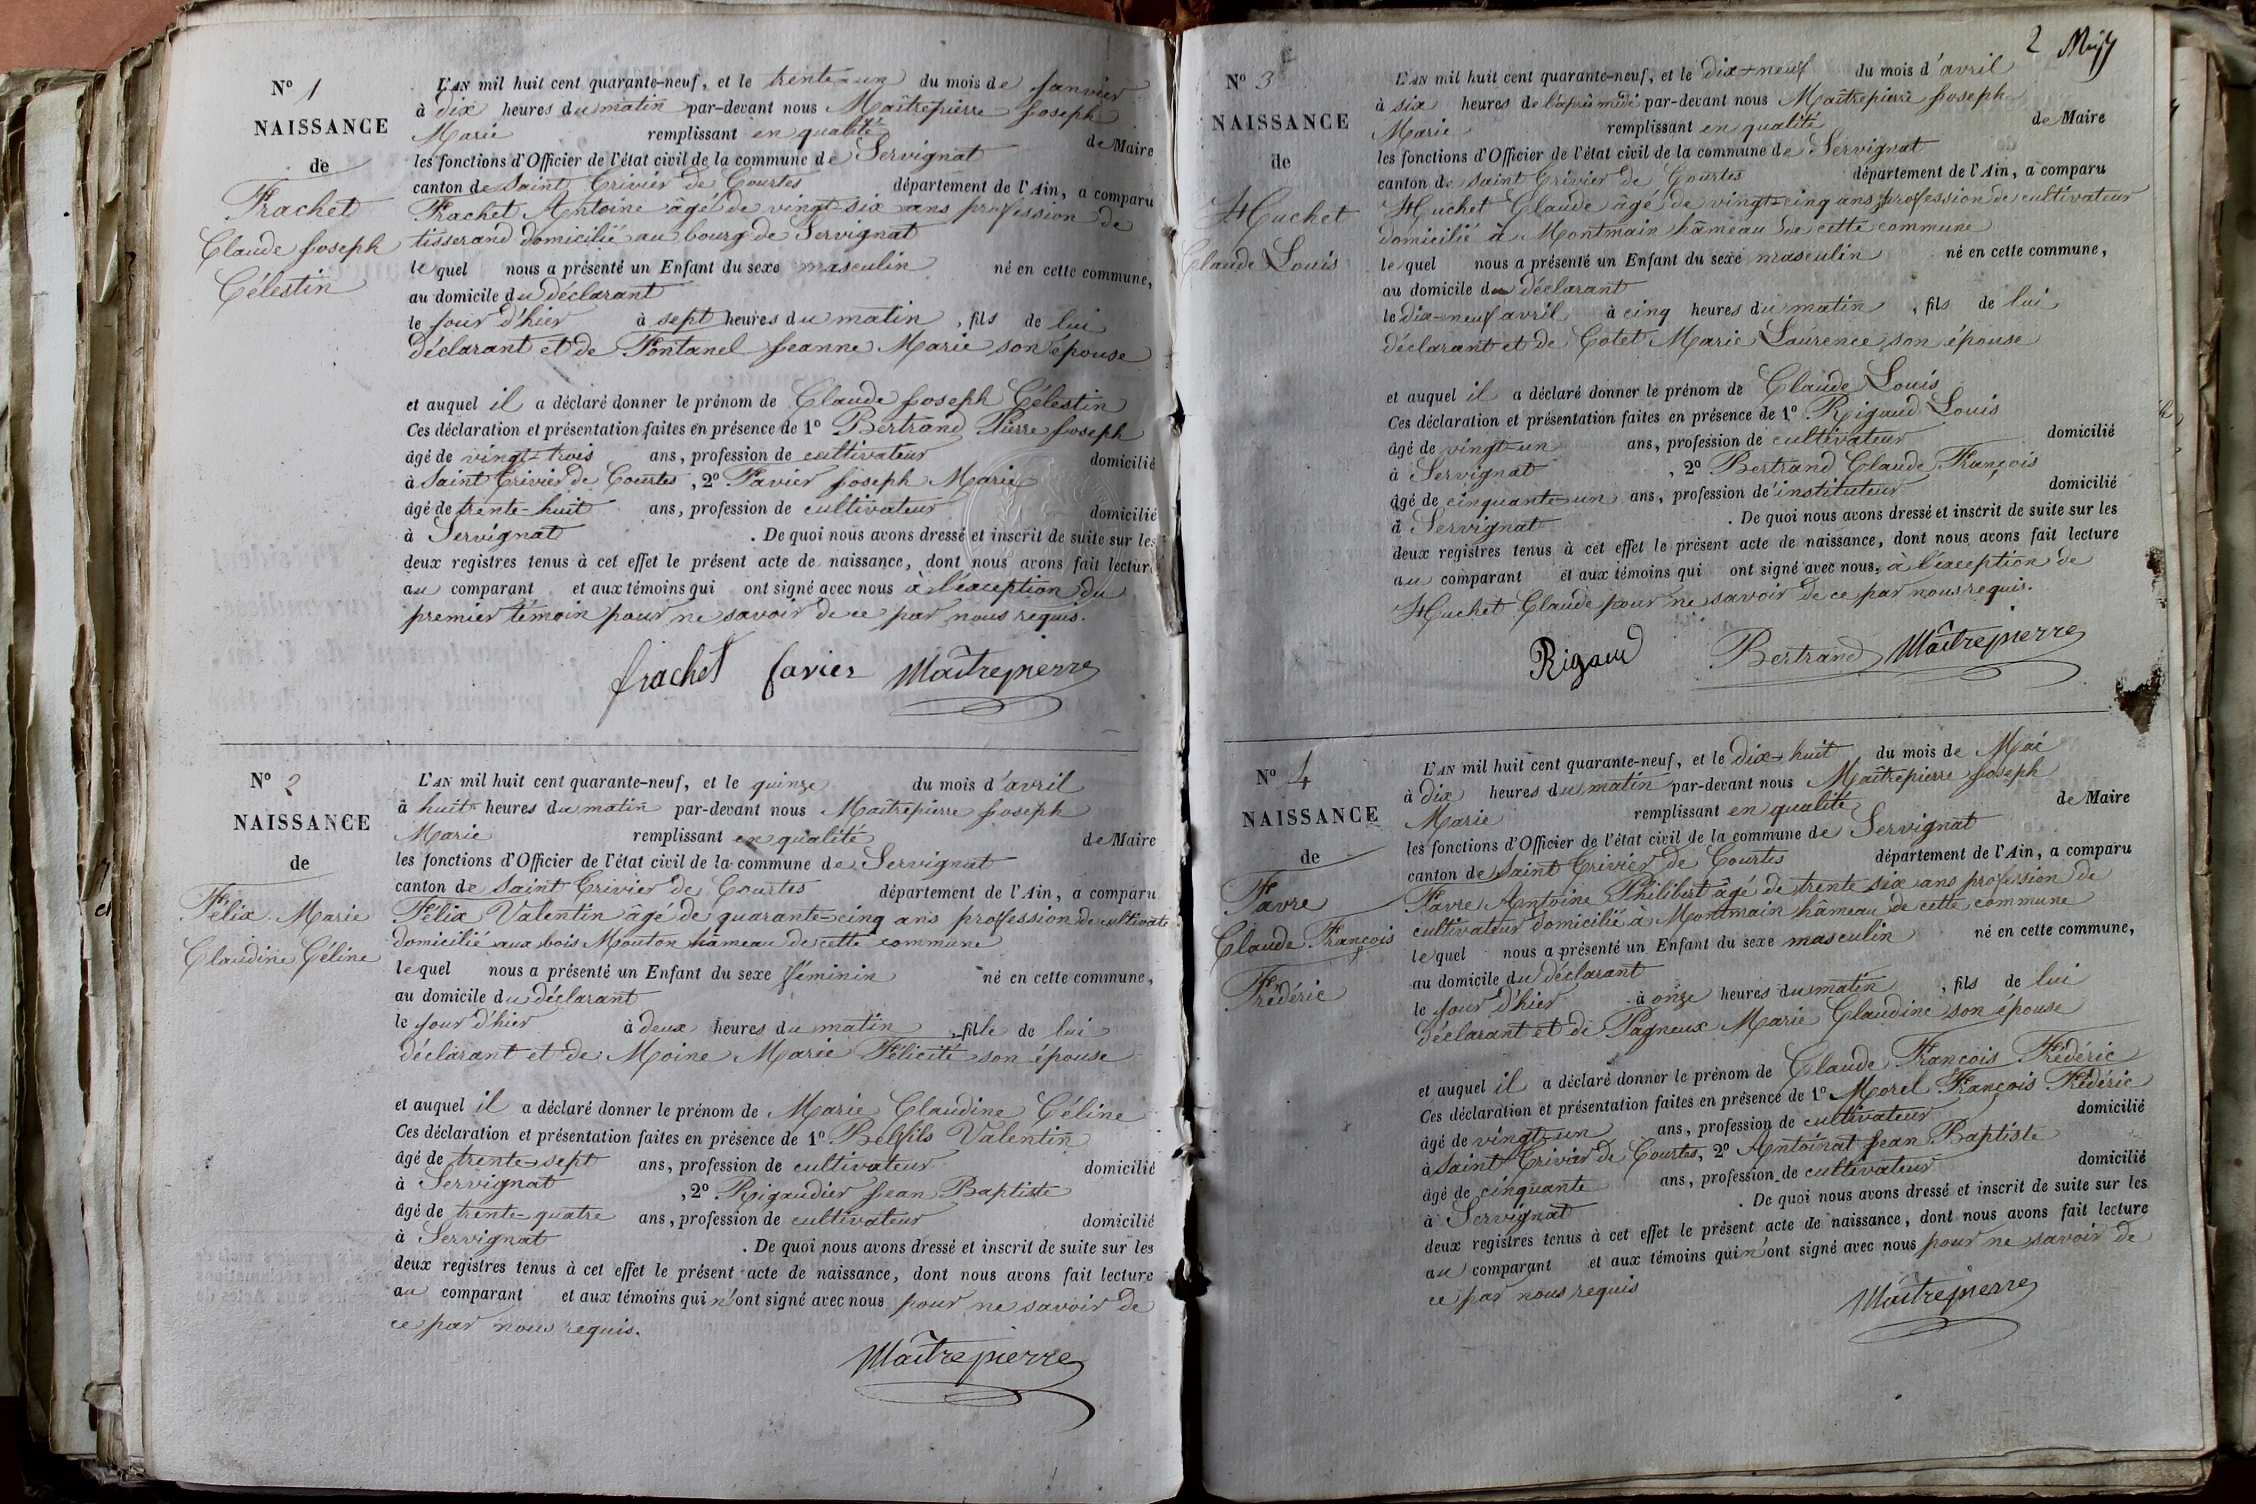 N° 1
NAISSANCE
de
Frachet
Claude Joseph
Célestin
L'AN mil huit cent quarante-neuf, et le trente-un du mois de Janvier
à dix heures du matin par-devant nous Maîtrepierre Joseph
Marie remplissant en qualité de Maire
les fonctions d'Officier de l'état civil de la commune de Servignat
canton de Saint Trivier de Courtes département de l'Ain, a comparu
Frachet Antoine âgé de vingt-six ans profession de
tisserand domicilié au bourg de Servignat
lequel nous a présenté un Enfant du sexe masculin né en cette commune,
au domicile du déclarant
le jour d'hier à sept heures du matin, fils de lui
déclarant et de Fontanel Jeanne Marie son épouse
et auquel il a déclaré donner le prénom de Claude Joseph Célestin
Ces déclaration et présentation faites en présence de 1° Bertrand Pierre Joseph
âgé de vingt-trois ans, profession de cultivateur domicilié
à Saint Trivier de Courtes, 2° Favier Joseph Marie
âgé de trente-huit ans, profession de cultivateur domicilié
à Servignat. De quoi nous avons dressé et inscrit de suite sur les
deux registres tenus à cet effet le présent acte de naissance, dont nous avons fait lecture
au comparant et aux témoins qui ont signé avec nous à l'éxception du
premier témoin pour ne savoir de ce par nous requis.
frachet favier Maîtrepierre
N° 2
NAISSANCE
de
Félix Marie
Claudine Céline
L'AN mil huit cent quarante-neuf, et le quinze du mois d'avril
à huit heures du matin par-devant nous Maîtrepierre Joseph
Marie remplissant en qualité de Maire
les fonctions d'Officier de l'état civil de la commune de Servignat
canton de Saint Trivier de Courtes département de l'Ain, a comparu
Félix Valentin âgé de quarante-cinq ans profession de cultivate
domicilié aux bois Mouton hâmeau de cette commune
lequel nous a présenté un Enfant du sexe féminin né en cette commune,
au domicile du déclarant
le jour d'hier à deux heures du matin, fille de lui
déclarant et de Moine Marie Félicité son épouse
et auquel il a déclaré donner le prénom de Marie Claudine Céline
Ces déclaration et présentation faites en présence de 1° Belfils Valentin
âgé de trente-sept ans, profession de cultivateur domicilié
à Servignat, 2° Rigaudier Jean Baptiste
âgé de trente-quatre ans, profession de cultivateur domicilié
à Servignat. De quoi nous avons dressé et inscrit de suite sur les
deux registres tenus à cet effet le présent acte de naissance, dont nous avons fait lecture
au comparant et aux témoins qui n'ont signé avec nous pour ne savoir de
ce par nous requis.
Maîtrepierre
2
N° 3
NAISSANCE
de
Huchet
Claude Louis
L'AN mil huit cent quarante-neuf, et le dix-neuf du mois d'avril
à six heures de l'après midi par-devant nous Maîtrepierre Joseph
Marie remplissant en qualité de Maire
les fonctions d'Officier de l'état civil de la commune de Servignat
canton de Saint Trivier de Courtes département de l'Ain, a comparu
Huchet Claude âgé de vingt-cinq ans profession de cultivateur
domicilié à Montmain hâmeau de cette commune
lequel nous a présenté un Enfant du sexe masculin né en cette commune,
au domicile du déclarant
le dix-neuf avril à cinq heures du matin, fils de lui
déclarant et de Cotet Marie Laurence son épouse
et auquel il a déclaré donner le prénom de Claude Louis
Ces déclaration et présentation faites en présence de 1° Rigaud Louis
âgé de vingt-un ans, profession de cultivateur domicilié
à Servignat, 2° Bertrand Claude François
âgé de cinquante-un ans, profession d'instituteur domicilié
à Servignat. De quoi nous avons dressé et inscrit de suite sur les
deux registres tenus à cet effet le présent acte de naissance, dont nous avons fait lecture
au comparant et aux témoins qui ont signé avec nous, à l'éxception de
Huchet Claude pour ne savoir de ce par nous requis.
Rigaud Bertrand Maîtrepierre
N° 4
NAISSANCE
de
Favre
Claude François
Frédéric
L'AN mil huit cent quarante-neuf, et le dix-huit du mois de Mai
à dix heures du matin par-devant nous Maîtrepierre Joseph
Marie remplissant en qualité de Maire
les fonctions d'Officier de l'état civil de la commune de Servignat
canton de Saint Trivier de Courtes département de l'Ain, a comparu
Favre Antoine Philibert âgé de trente six ans profession de
cultivateur domicilié à Montmain hâmeau de cette commune
lequel nous a présenté un Enfant du sexe masculin né en cette commune,
au domicile du déclarant
le jour d'hier à onze heures du matin, fils de lui
déclarant et de Pagneux Marie Claudine son épouse
et auquel il a déclaré donner le prénom de Claude François Frédéric
Ces déclaration et présentation faites en présence de 1° Morel François Frédéric
âgé de vingt-un ans, profession de cultivateur domicilié
à Saint Trivier de Courtes, 2° Antoinat Jean Baptiste
âgé de cinquante ans, profession de cultivateur domicilié
à Servignat. De quoi nous avons dressé et inscrit de suite sur les
deux registres tenus à cet effet le présent acte de naissance, dont nous avons fait lecture
au comparant et aux témoins qui n'ont signé avec nous pour ne savoir de
ce par nous requis
Maîtrepierre